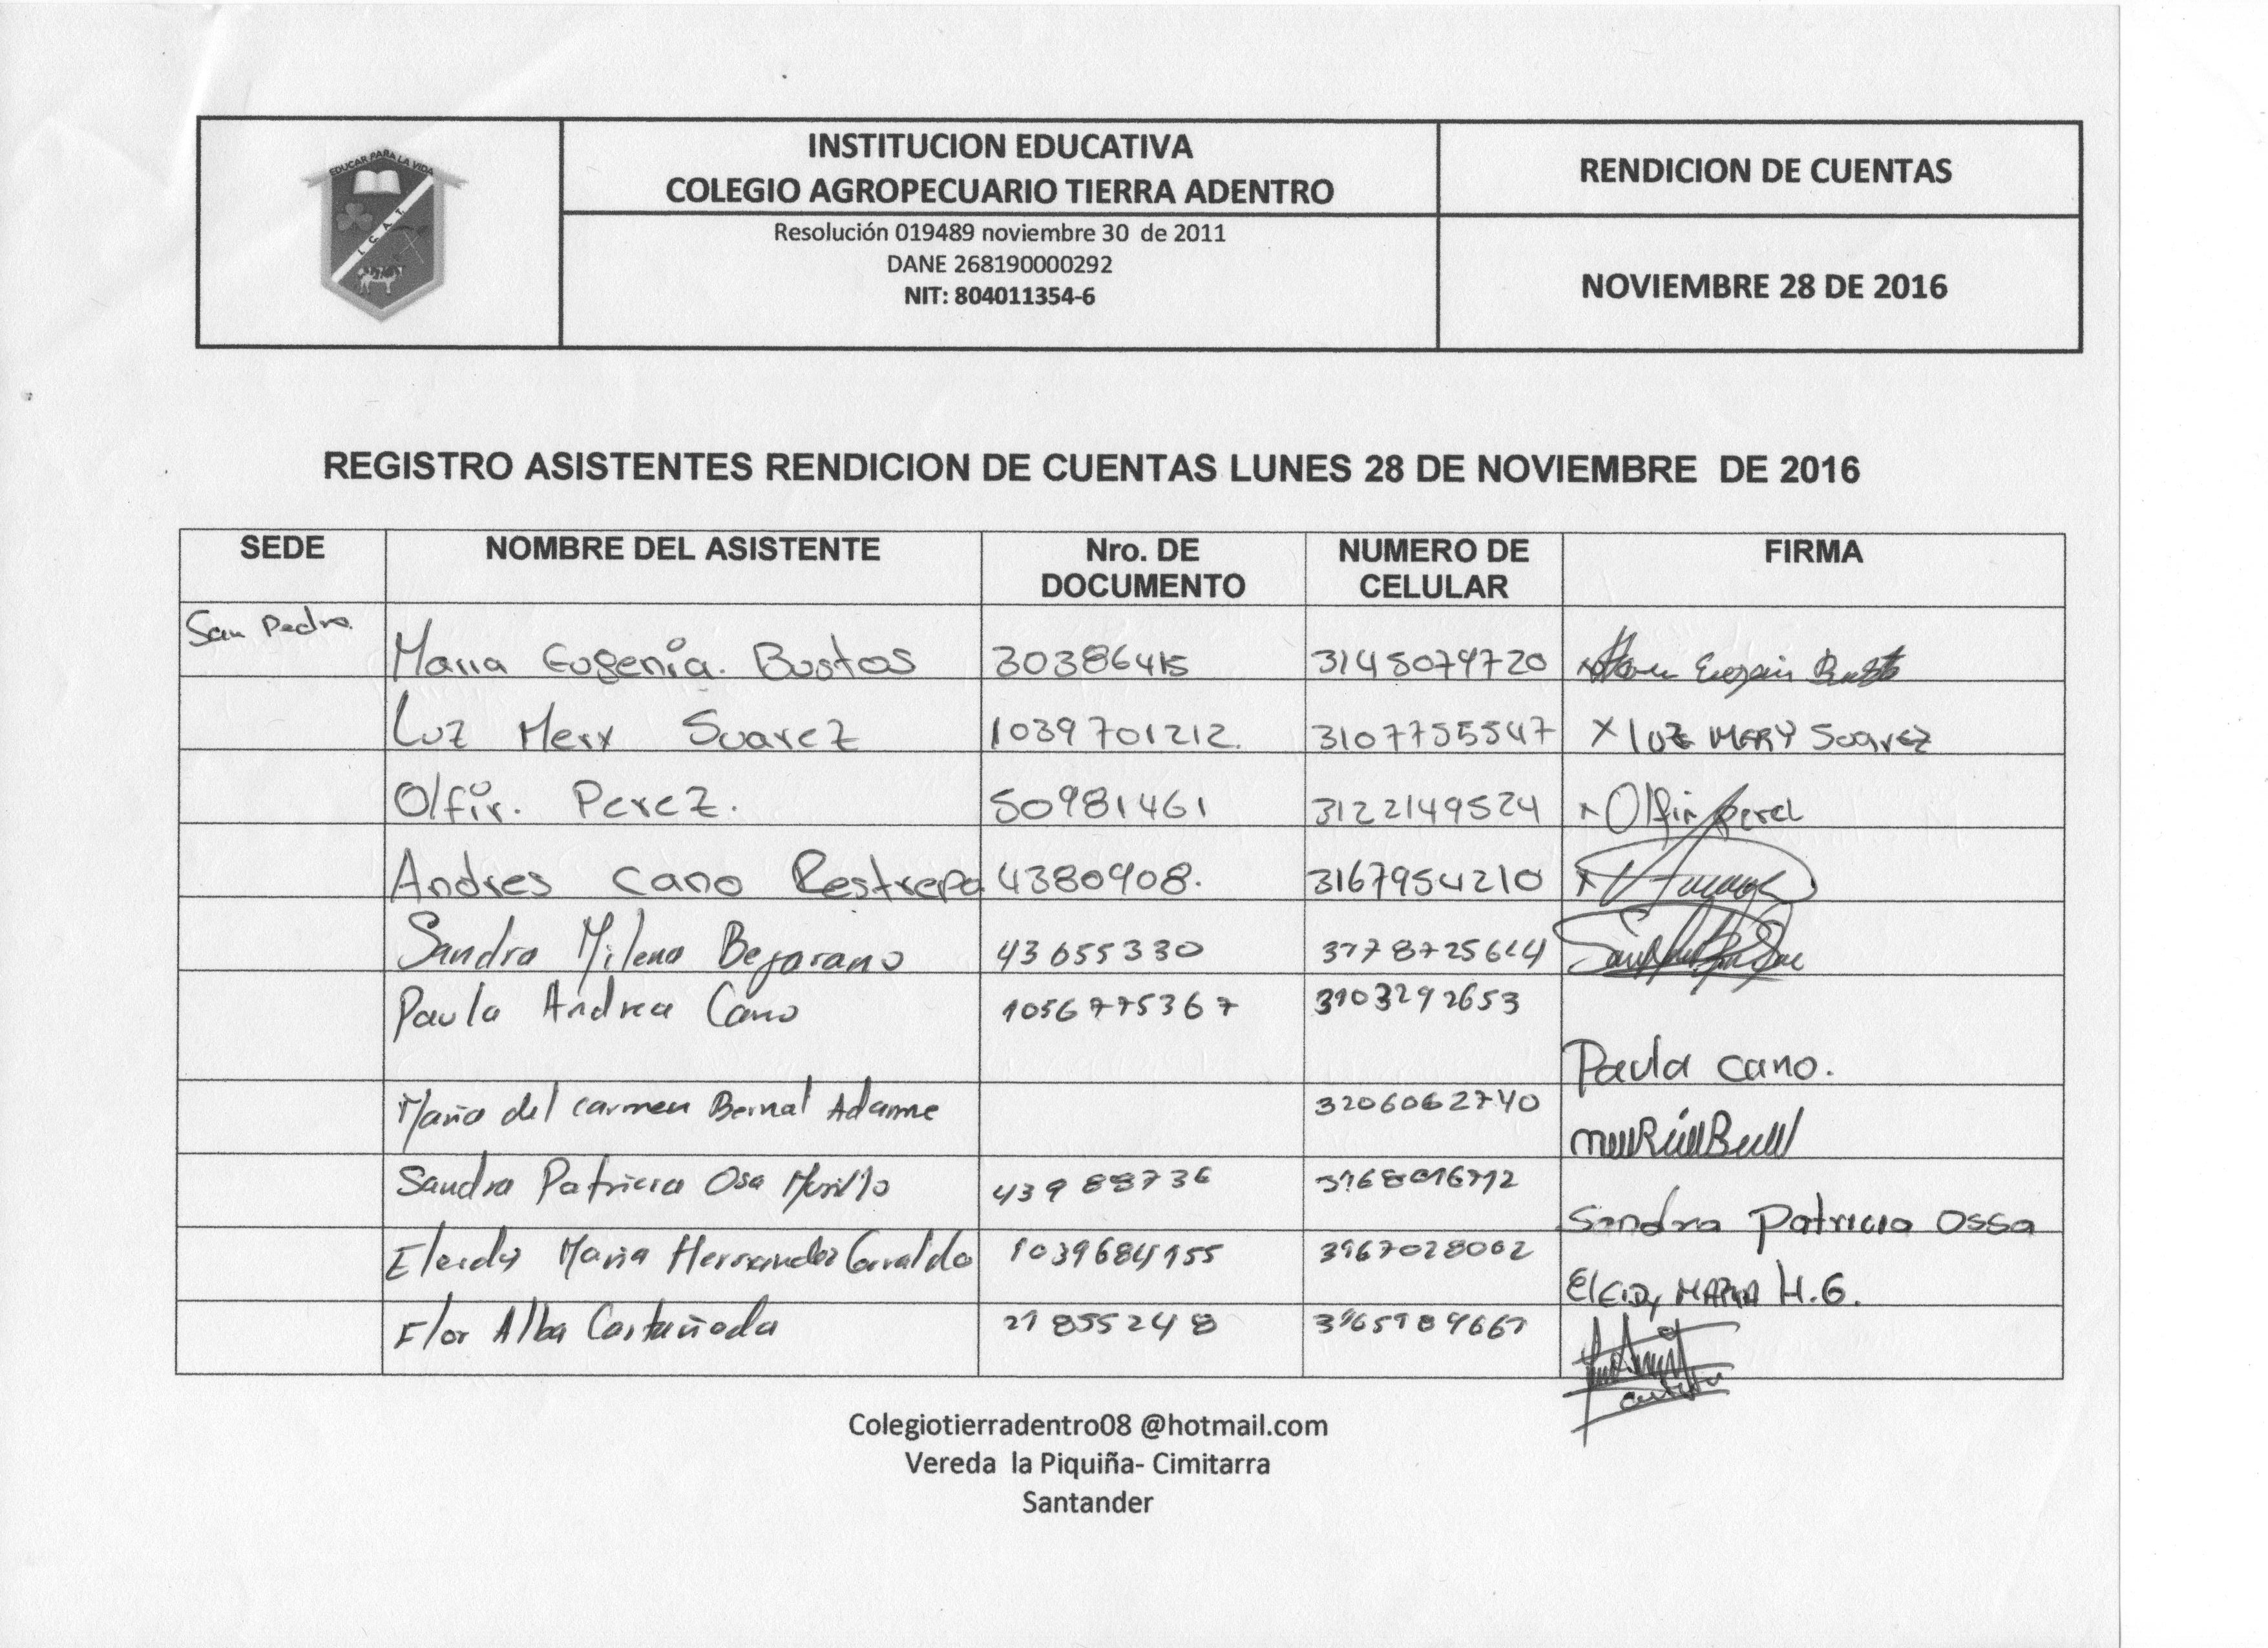 EDUCAR PARA LA VIDA
I. C. A. T.
INSTITUCION EDUCATIVA
COLEGIO AGROPECUARIO TIERRA ADENTRO
RENDICION DE CUENTAS
Resolución 019489 noviembre 30 de 2011
DANE 268190000292
NIT: 804011354-6
NOVIEMBRE 28 DE 2016
REGISTRO ASISTENTES RENDICION DE CUENTAS LUNES 28 DE NOVIEMBRE DE 2016
SEDE NOMBRE DEL ASISTENTE Nro. DE DOCUMENTO NUMERO DE CELULAR FIRMA
San Pedro. Maria Eugenia. Bustos 30386415 3145079720
Luz Mery Suarez 1039701212. 3107755547 X luz MERY Suarez
Olfir. Perez. 50981461 3122149524 x Olfir perez
Andres Cano Restrepo 4380908. 3167954210
Sandra Milena Bejarano 43655330
Paula Andrea Cano 1056775367 3103292653 Paula cano.
Maria del carmen Bernal Adarme 3206062740
Sandra Patricia Osa Murillo 43988736 Sandra Patricia Ossa
Eleidy Maria Hernandez Giraldo 1039684155 3167028002 ElEiDy MARIA H.G.
Flor Alba Castañeda 21855248
Colegiotierradentro08 @hotmail.com
Vereda la Piquiña- Cimitarra
Santander